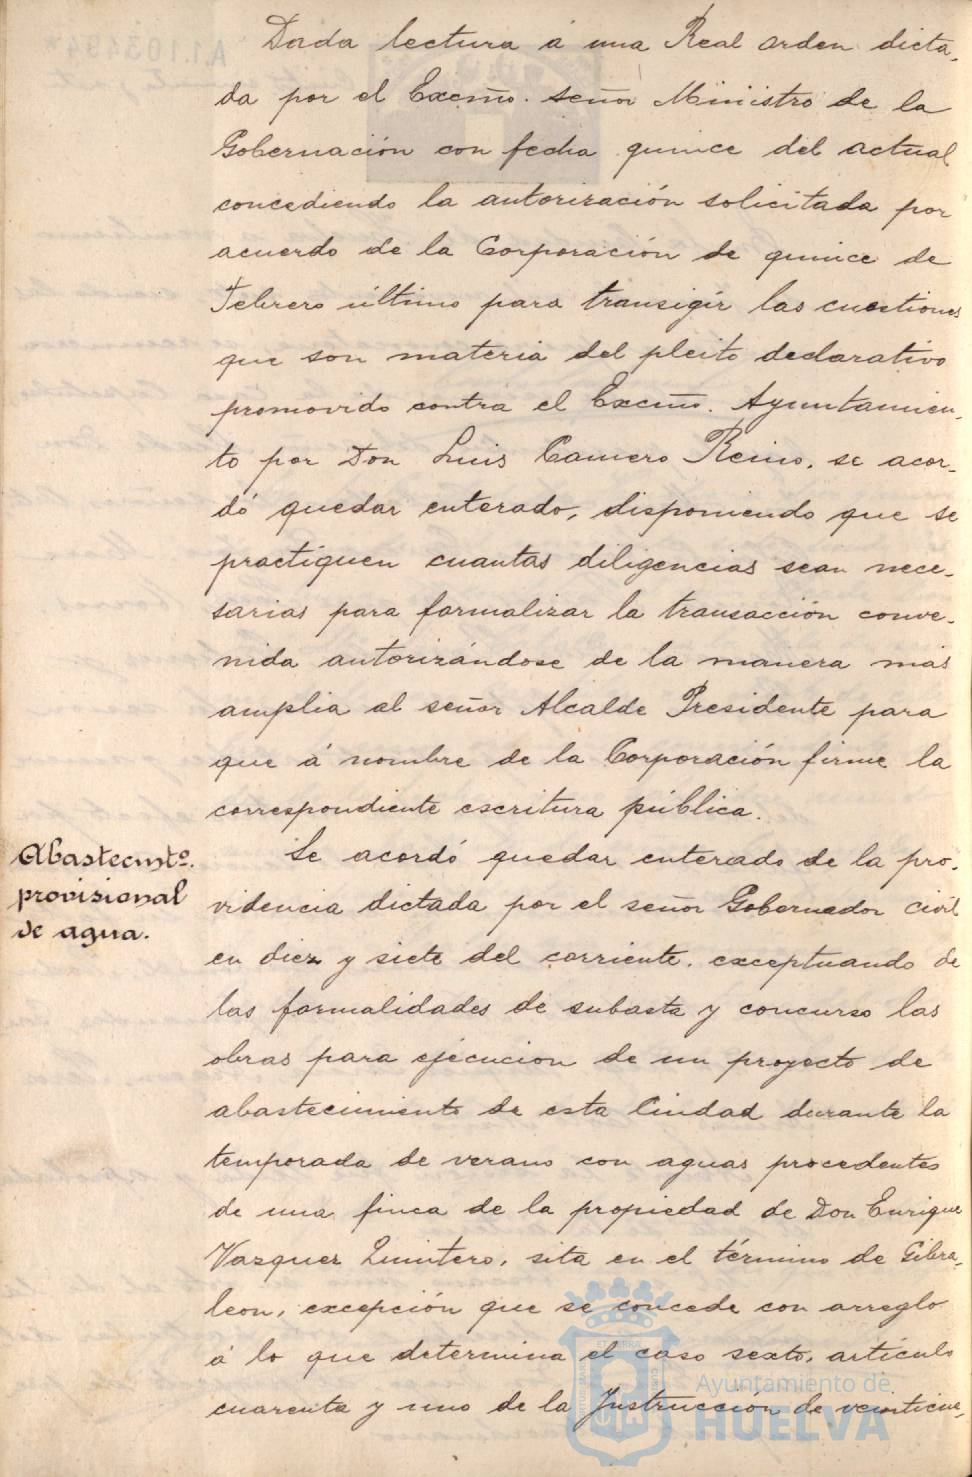 Dada lectura á una Real orden dicta-
da por el Excmo. señor Ministro de la
Gobernación con fecha quince del actual
concediendo la autorización solicitada por
acuerdo de la Corporación de quince de
Febrero último para transigir las cuestiones
que son materia del pleito declarativo
promovido contra el Excmo. Ayuntamien-
to por Don Luis Camero Reino, se acor-
dó quedar enterado, disponiendo que se
practiquen cuantas diligencias sean nece-
sarias para formalizar la transacción conve-
nida autorizándose de la manera más
amplia al señor Alcalde Presidente para
que á nombre de la Corporación firme la
correspondiente escritura pública.
Abastecmtº.
provisional
de agua.
Se acordó quedar enterado de la pro-
videncia dictada por el señor Gobernador civil
en diez y siete del corriente, exceptuando de
las formalidades de subasta y concurso las
obras para ejecucion de un proyecto de
abastecimiento de esta Ciudad durante la
temporada de verano con aguas procedentes
de una finca de la propiedad de Don Enrique
Vazquez Quintero, sita en el término de Gibra-
leon, excepción que se concede con arreglo
á lo que determina el caso sexto, artículo
cuarenta y uno de la Instrucción de veinticua-
Ayuntamiento de
HUELVA